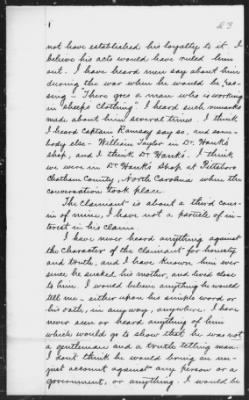 23
not have established his loyalty to it. I
believe his acts would have ruled him
out. I have heard men say about him
during the war when he would be pas-
sing "There goes a man who is working
in sheep's clothing" I heard such remarks
made about him several times. I think
I heard Captain Ramsay say so, and some-
body else - William Taylor in Dr. Hank's
shop, and I think Dr. Hanks. I think
we were in Dr. Hank's shop at Pittsboro
Chatham County, North Carolina when the
conversation took place
The Claimant is about a third cous-
in of mine, I have not a particle of in-
terest in his claim.
I have never heard anything against
the character of the claimant for honesty
and truth, and I have known him ever
since he sucked his mother, and lived close
to him. I would believe anything he would
tell me - either upon his simple word or
his oath, in any way, anywhere. I have
never seen or heard anything of him
which would go to show that he was not
a gentleman and a truth telling man.
I don't think he would bring an un-
just account against any person or a
government, or anything. I would be